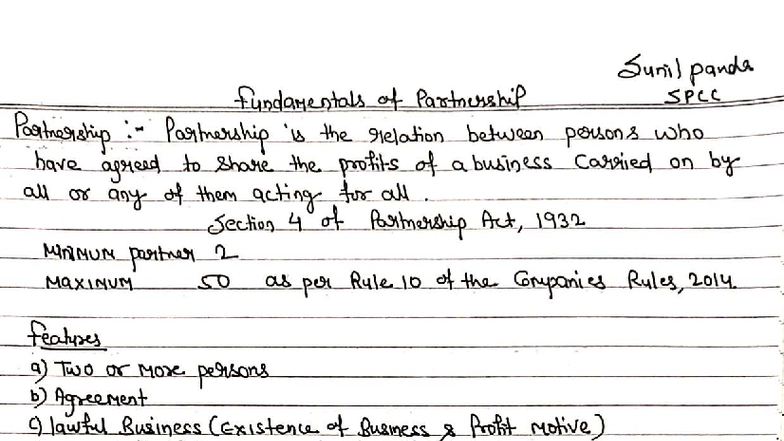 Sunil panda
Fundamentals of Partnership SPCC
Partnership :- Partnership is the relation between persons who
have agreed to share the profits of a business Carried on by
all or any of them acting for all.
Section 4 of Partnership Act, 1932
MINIMUM partner 2
MAXIMUM 50 as per Rule 10 of the Companies Rules, 2014.
Features
a) Two or More persons
b) Agreement
c) lawful Business (Existence of Business & Profit Motive)